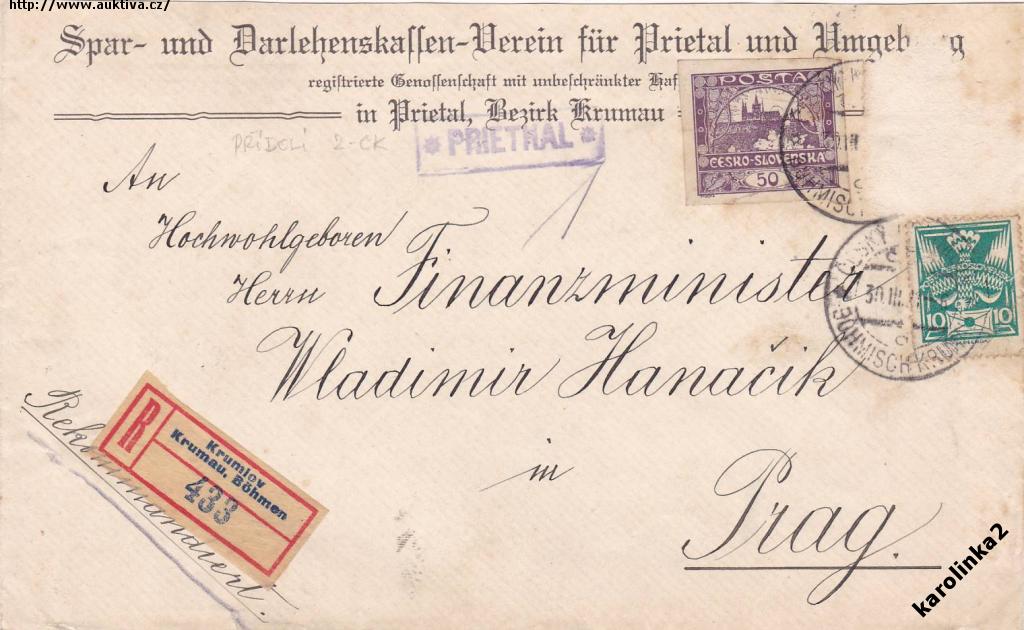 http://www.auktiva.cz/
Spar- und Darlehenskassen-Verein für Prietal und Umgebung
registrierte Genossenschaft mit unbeschränkter Haf
in Prietal, Bezirk Krumau
PŘÍDOLÍ 2-CK
* PRIETHAL *
POSTA
CESKO-SLOVENSKA
50
An
Hochwohlgeboren
Herrn Finanzminister
Wladimir Hanačik
in Prag.
10 10
30.III.
BÖHMISCH KRUM
Rekommandiert.
R
Krumlov
Krumau, Böhmen
433
karolinka2